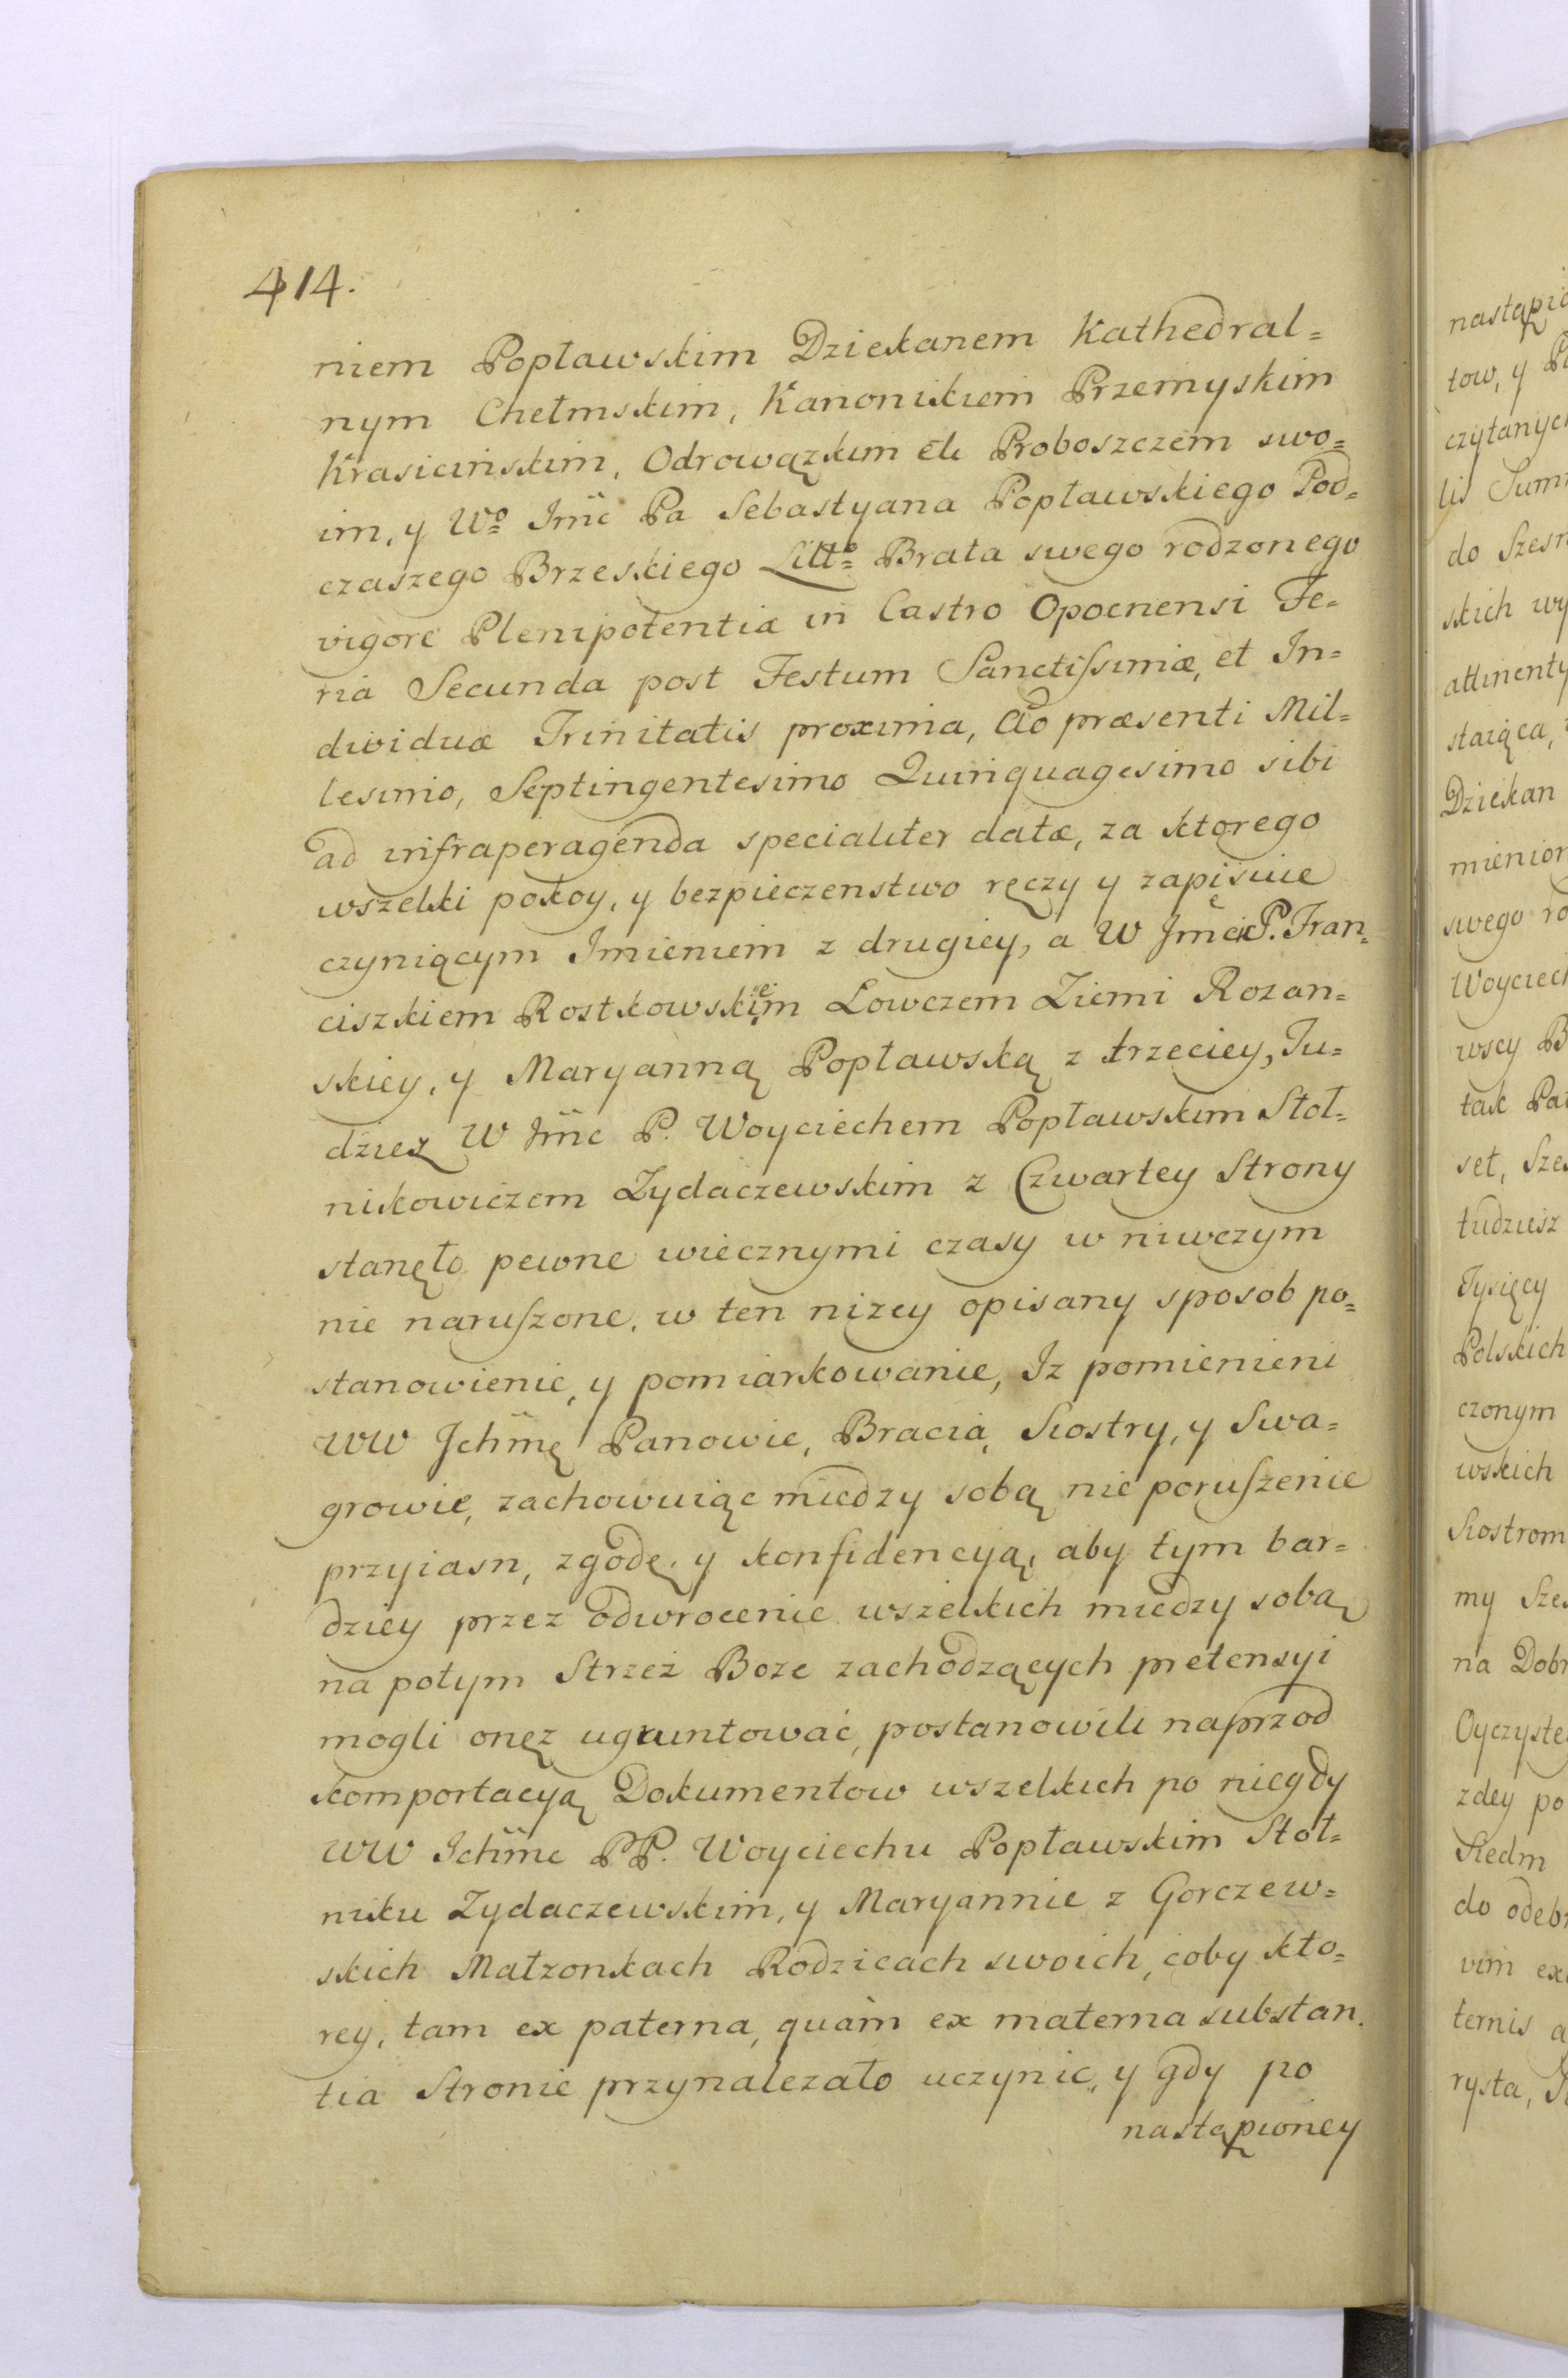 414.
niem Popławskim Dziekanem Kathedral=
nym Chełmskim, Kanonikiem Przemyskim
Krasicinskim, Odrowązkim etc Proboszczem swo=
im, y Wo Jmc Pa Sebastyana Popławskiego Pod=
czaszego Brzeskiego Litto Brata swego rodzonego
vigore Plenipotentiæ in Castro Opocnensi Fe=
ria Secunda post Festum Sanctissimæ, et In=
dividuæ Trinitatis proxima, Ao præsenti Mil=
lesimo, Septingentesimo Quinquagesimo sibi
ad infraperagenda specialiter datæ, za ktorego
wszelki pokoy, y bezpieczenstwo ręczy y zapisuie
czyniącym Imieniem z drugiey, a W Jmci P. Fran=
ciszkiem Rostkowskiem Lowczem Ziemi Rozan=
skiey, y Maryanną Popławską z trzeciey, Tu=
dziez W Jmc P. Woyciechem Popławskim Stol=
nikowiczem Zydaczewskim z Czwartey Strony
stanęło pewne wiecznymi czasy w niwczym
nie naruszone, w ten nizey opisany sposob po=
stanowienie, y pomiarkowanie, Iz pomienieni
WW Jchmę Panowie, Bracia, Siostry, y Swa=
growie, zachowuiąc miedzy sobą nie poruszenie
przyiasn, zgodę, y konfidencyą, aby tym bar=
dziey przez odwrocenie wszelkich miedzy sobą
na potym Strzez Boze zachodzących pretensyi
mogli onęz ugruntować, postanowili naprzod
komportacyą Dokumentow wszelkich po niegdy
WW Ichmc PP. Woyciechu Popławskim Stol=
niku Zydaczewskim, y Maryannie z Gorczew=
skich Małzonkach Rodzicach swoich, coby kto=
rey, tam ex paterna, quàm ex materna substan=
tia Stronie przynalezało uczynic, y gdy po
nastąpioney
nastąpio
tow, y
czytanych
lis Summ
do Szesn
skich wy
attinenty
staiąca,
Dziekan
mienion
swego ro
Woyciech
wscy B
tak Pa
set, Szes
tudziesz
Tysięcy
Polskich
czonym
wskich
Siostrom
my Szes
na Dobr
Oyczyste
zdey po
Siedm
do odebr
vim ex
ternis a
rysta,